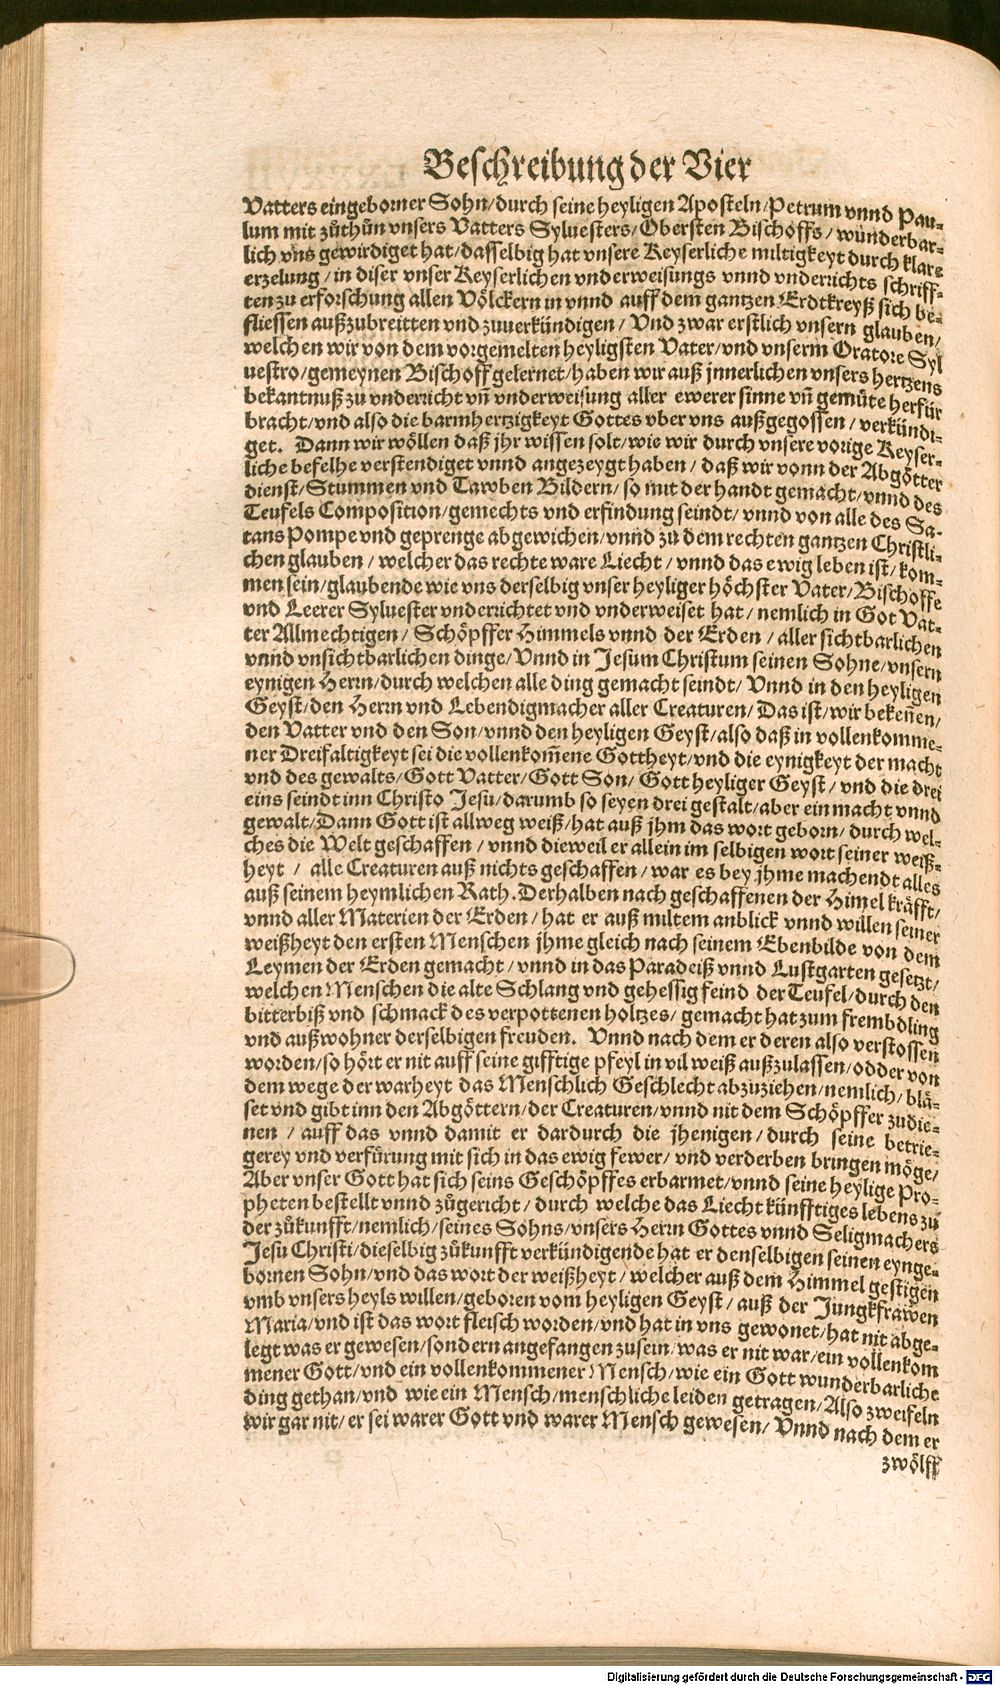 Beschreibung der Vier
Vatters eingeborner Sohn/durch seine heyligen Aposteln/Petrum vnnd Pau-
lum mit zůthůn vnsers Vatters Syluesters/Obersten Bischoffs/wunderbar-
lich vns gewirdiget hat/dasselbig hat vnsere Keyserliche miltigkeyt durch klare
erzelung/in diser vnser Keyserlichen vnderweisungs vnnd vnderrichts schriff-
ten zu erforschung allen Völckern in vnnd auff dem gantzen Erdtkreyß sich be-
fliessen außzubreitten vnd zuuerkündigen/Vnd zwar erstlich vnsern glauben/
welchen wir von dem vorgemelten heyligsten Vater/vnd vnserm Oratore Syl
uestro/gemeynen Bischoff gelernet/haben wir auß jnnerlichen vnsers hertzens
bekantnuß zu vnderricht vñ vnderweisung aller ewerer sinne vñ gemüte herfür
bracht/vnd also die barmhertzigkeyt Gottes vber vns außgegossen/verkündi-
get. Dann wir wöllen daß jhr wissen solt/wie wir durch vnsere vorige Keyser-
liche befelhe verstendiget vnnd angezeygt haben/daß wir vonn der Abgötter
dienst/Stummen vnd Tawben Bildern/so mit der handt gemacht/vnnd des
Teufels Composition/gemechts vnd erfindung seindt/vnnd von alle des Sa-
tans Pompe vnd geprenge abgewichen/vnnd zů dem rechten gantzen Christli-
chen glauben/welcher das rechte ware Liecht/vnnd das ewig leben ist/kom-
men sein/glaubende wie vns derselbig vnser heyliger höchster Vater/Bischoffe
vnd Leerer Syluester vnderrichtet vnd vnderweiset hat/nemlich in Got Vat-
ter Allmechtigen/Schöpffer Himmels vnnd der Erden/aller sichtbarlichen
vnnd vnsichtbarlichen dinge/Vnnd in Jesum Christum seinen Sohne/vnsern
eynigen Herrn/durch welchen alle ding gemacht seindt/Vnnd in den heyligen
Geyst/den Herrn vnd Lebendigmacher aller Creaturen/Das ist/wir bekeñen/
den Vatter vnd den Son/vnnd den heyligen Geyst/also daß in vollenkomme-
ner Dreifaltigkeyt sei die vollenkom̃ene Gottheyt/vnd die eynigkeyt der macht
vnd des gewalts/Gott Vatter/Gott Son/Gott heyliger Geyst/vnd die drei
eins seindt inn Christo Jesu/darumb so seyen drei gestalt/aber ein macht vnnd
gewalt/Dann Gott ist allweg weiß/hat auß jhm das wort geborn/durch wel-
ches die Welt geschaffen/vnnd dieweil er allein im selbigen wort seiner weiß-
heyt/alle Creaturen auß nichts geschaffen/war es bey jhme machendt alles
auß seinem heymlichen Rath. Derhalben nach geschaffenen der Himel kräfft/
vnnd aller Materien der Erden/hat er auß miltem anblick vnnd willen seiner
weißheyt den ersten Menschen jhme gleich nach seinem Ebenbilde von dem
Leymen der Erden gemacht/vnnd in das Paradeiß vnnd Lustgarten gesetzt/
welchen Menschen die alte Schlang vnd gehessig feind der Teufel/durch den
bitterbiß vnd schmack des verpottenen holtzes/gemacht hat zum frembdling
vnd außwohner derselbigen freuden. Vnnd nach dem er deren also verstossen
worden/so hört er nit auff seine gifftige pfeyl in vil weiß außzulassen/odder von
dem wege der warheyt das Menschlich Geschlecht abzuziehen/nemlich/blä-
set vnd gibt inn den Abgöttern/der Creaturen/vnnd nit dem Schöpffer zu die-
nen/auff das vnnd damit er dardurch die jhenigen/durch seine betrie-
gerey vnd verfürung mit sich in das ewig fewer/vnd verderben bringen möge/
Aber vnser Gott hat sich seins Geschöpffes erbarmet/vnnd seine heylige Pro-
pheten bestellt vnnd zůgericht/durch welche das Liecht künfftiges lebens zů
der zůkunfft/nemlich/seines Sohns/vnsers Herrn Gottes vnnd Seligmachers
Jesu Christi/dieselbig zůkunfft verkündigende hat er denselbigen seinen eynge-
bornen Sohn/vnd das wort der weißheyt/welcher auß dem Himmel gestigen
vmb vnsers heyls willen/geboren vom heyligen Geyst/auß der Jungkfrawen
Maria/vnd ist das wort fleisch worden/vnd hat in vns gewonet/hat nit abge-
legt was er gewesen/sondern angefangen zu sein/was er nit war/ein vollenkom
mener Gott/vnd ein vollenkommener Mensch/wie ein Gott wunderbarliche
ding gethan/vnd wie ein Mensch/menschliche leiden getragen/Also zweifeln
wir gar nit/er sei warer Gott vnd warer Mensch gewesen/Vnnd nach dem er
zwölff
Digitalisierung gefördert durch die Deutsche Forschungsgemeinschaft - DFG